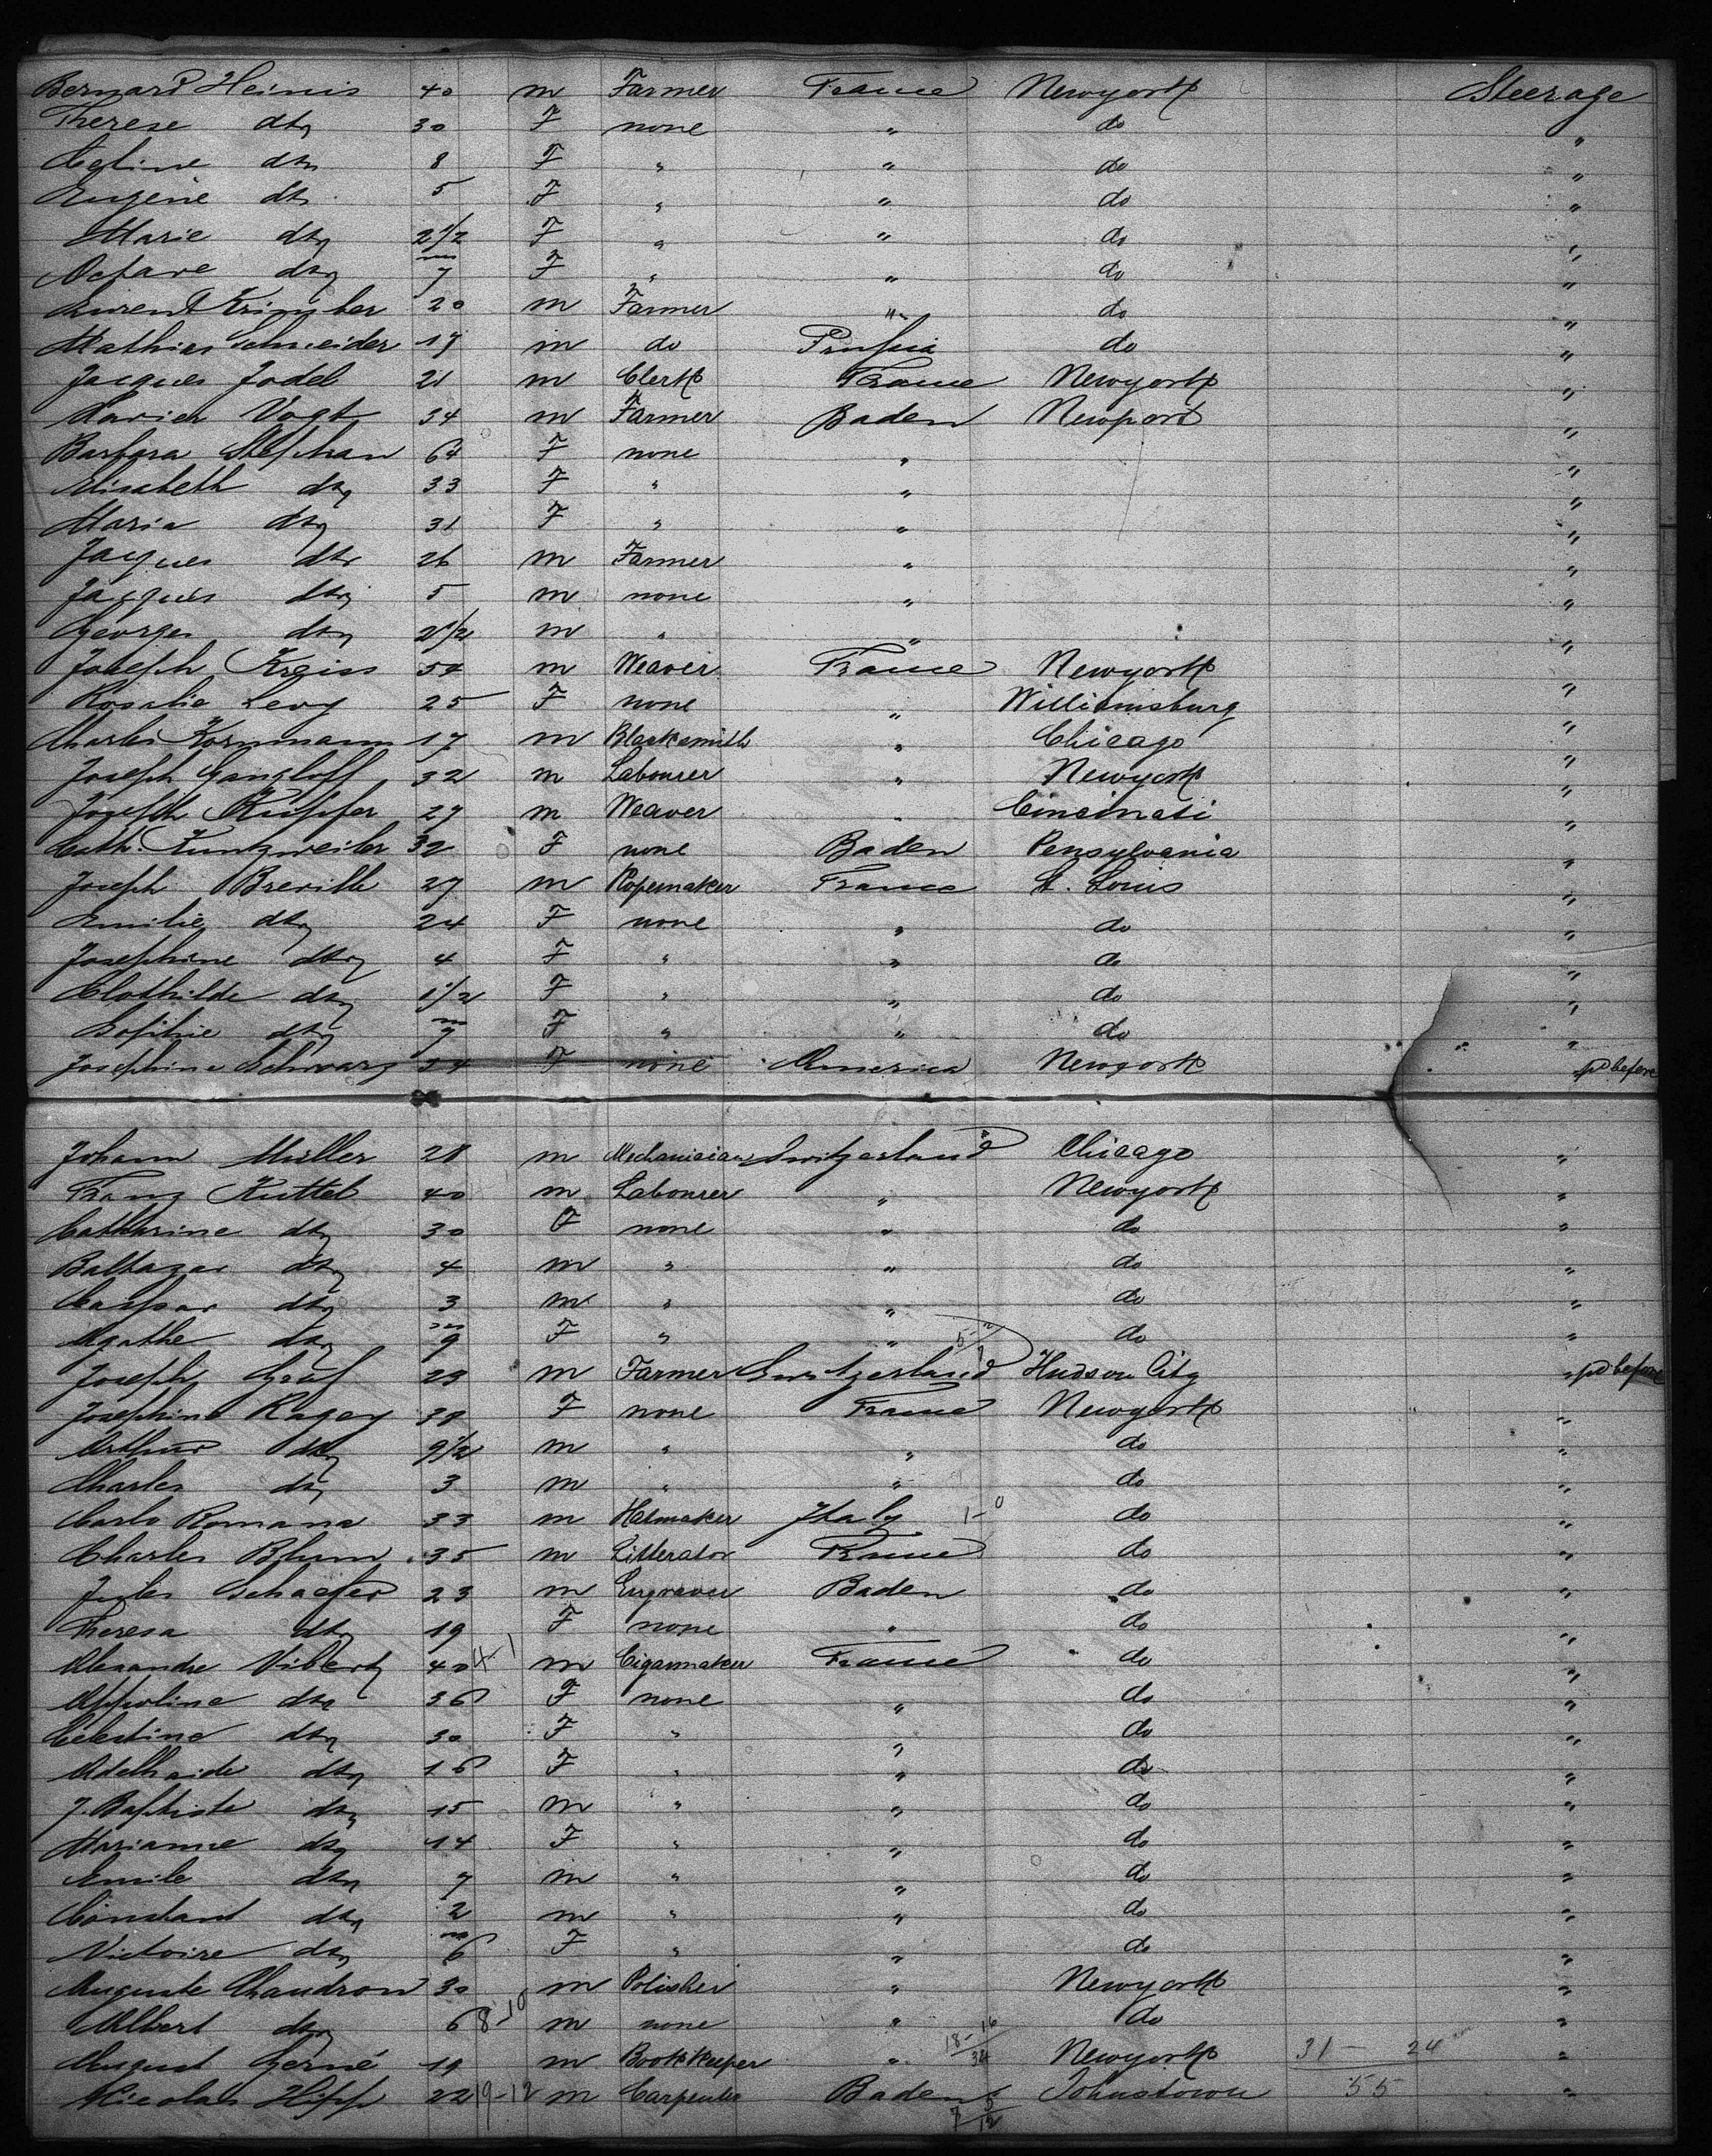 Bernard Heinis 40 m Farmer France Newyork Steerage
Therese dto 30 F none " do "
dto 8 F " " do "
Eugenie dto 5 F " " do "
Marie dto 2 1/2 F " " do "
Octave dto 7 F " " do "
20 m Farmer " do "
Mathias Schneider 17 m do Prussia do "
Jacques Jodel 21 m Clerk France Newyork "
Vogt 34 m Farmer Baden Newport "
Barbara Stephan 64 F none " "
Elisabeth dto 33 F " " "
Maria dto 31 F " " "
Jacques dto 26 m Farmer " "
Jacques dto 5 m none " "
Georges dto 2 1/2 m " " "
Joseph Kreiss 54 m Weaver France Newyork "
Rosalie Levy 25 F none " Williamsburg "
Charles Kornmann 17 m Blacksmith " Chicago "
Joseph Gangloff 32 m Labourer " Newyork "
Joseph Kupfer 27 m Weaver " Cincinati "
Cath. Kuntzweiler 32 F none Baden Pensylvania "
Joseph Breville 27 m Ropemaker France St. Louis "
Emilie dto 24 F none " do "
Josephine dto 4 F " " do "
Clothilde dto 1 1/2 F " " do "
Sophie dto 7 F " " do "
Josephine Schwarz 24 F none America Newyork pd before
Johann Müller 28 m Mechanician Switzerland Chicago "
Franz Kuttel 40 m Labourer " Newyork "
Catharine dto 30 F none " do "
Baltazar dto 4 m " " do "
Caspar dto 3 m " " do "
Agathe dto 9 F " " do "
Joseph Graf 23 m Farmer Switzerland Hudson City " pd before
Josephine Ragey 38 F none France Newyork "
Arthur dto 9 1/2 m " " do "
Charles dto 3 m " " do "
Carlo Romana 33 m Hatmaker Italy do "
Charles Blum 35 m Litterator France do "
Jules Schaefer 23 m Engraver Baden do "
Theresa dto 19 F none " do "
Alexandre Viberty 40 4-1 m Cigarmaker France do "
Appoline dto 36 F none " do "
Celestine dto 30 F " " do "
Adelhaide dto 16 F " " do "
J. Baptiste dto 15 m " " do "
Marianne dto 14 F " " do "
Emile dto 7 m " " do "
Constant dto 2 m " " do "
Victoire dto 6 F " " do "
Auguste Chaudron 30 m Polisher " Newyork "
Albert dto 6 8-10 m none " do "
August Gerné 19 m Bookkeeper " Newyork 31 - 24 "
Nicolas Hipp 22 9-12 m Carpenter Baden Johnstown 55 "